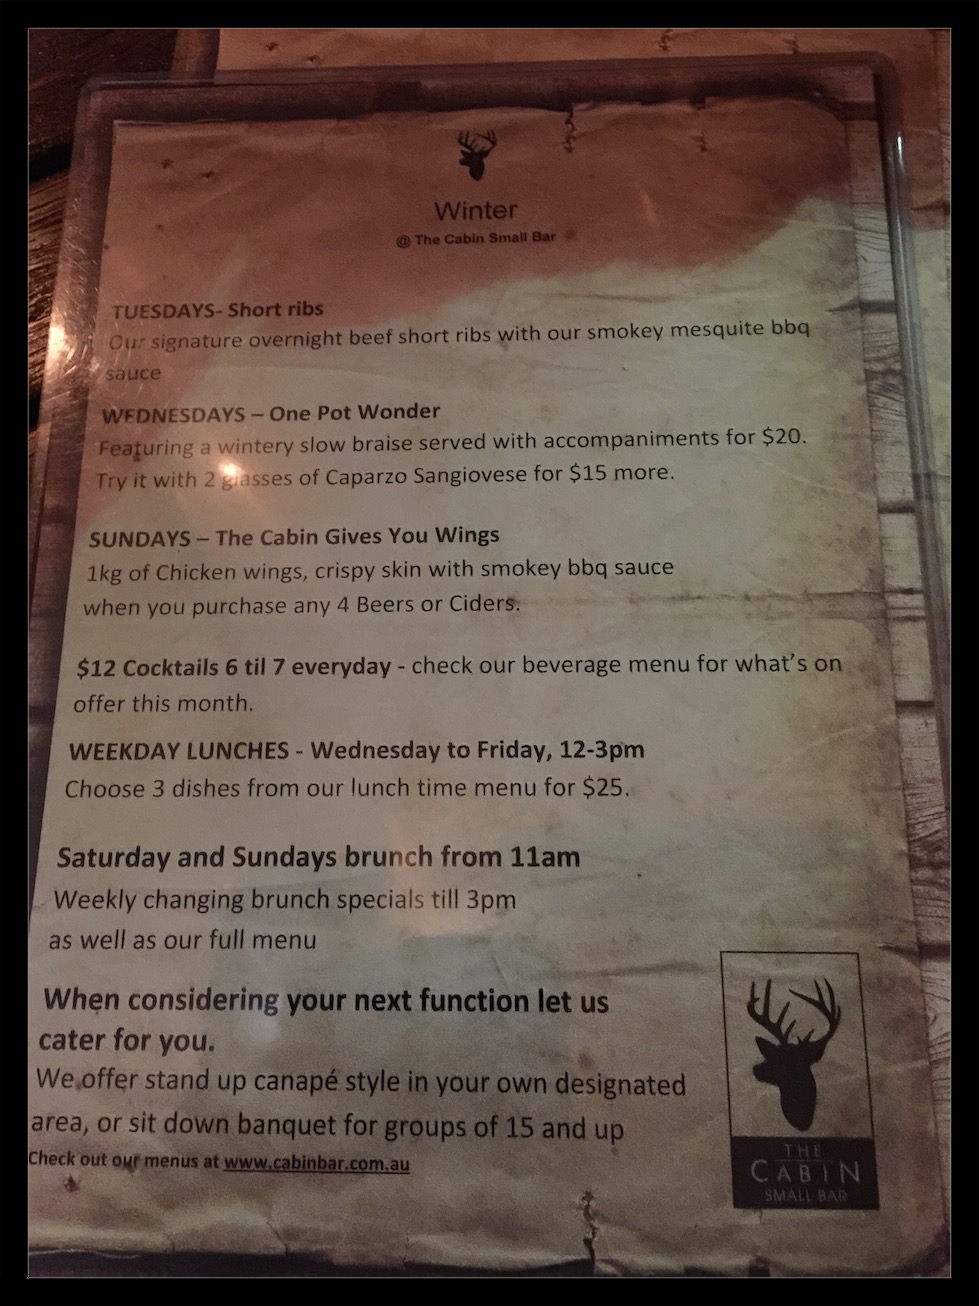 Winter
@ The Cabin Small Bar
TUESDAYS- Short ribs
Our signature overnight beef short ribs with our smokey mesquite bbq
sauce
WEDNESDAYS – One Pot Wonder
Featuring a wintery slow braise served with accompaniments for $20.
Try it with 2 glasses of Caparzo Sangiovese for $15 more.
SUNDAYS – The Cabin Gives You Wings
1kg of Chicken wings, crispy skin with smokey bbq sauce
when you purchase any 4 Beers or Ciders.
$12 Cocktails 6 til 7 everyday - check our beverage menu for what's on
offer this month.
WEEKDAY LUNCHES - Wednesday to Friday, 12-3pm
Choose 3 dishes from our lunch time menu for $25.
Saturday and Sundays brunch from 11am
Weekly changing brunch specials till 3pm
as well as our full menu
When considering your next function let us
cater for you.
We offer stand up canapé style in your own designated
area, or sit down banquet for groups of 15 and up
Check out our menus at www.cabinbar.com.au
THE
CABIN
SMALL BAR